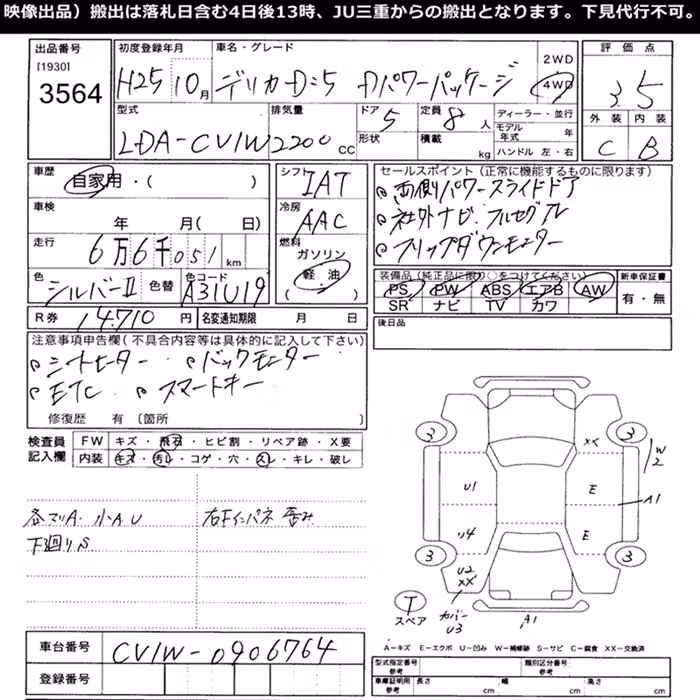 映像出品）搬出は落札日含む4日後13時、JU三重からの搬出となります。下見代行不可。
出品番号 初度登録年月 車名・グレード 2WD 評価点
[1930] 3564 H25 10月 デリカD:5 Dパワーパッケージ 4WD 3.5
型式 排気量 ドア 定員 ディーラー・並行 外装 内装
LDA-CV1W 2200cc 5 8人 モデル年式 年 C B
形状 積載 kg ハンドル 左・右
車歴 自家用・( ) シフト IAT セールスポイント(正常に機能するものに限ります)
両側パワースライドドア
車検 年 月( 日) 冷房 AAC 社外ナビ フルセグTV
走行 6万6千051km 燃料 ガソリン フリップダウンモニター
軽油
( ・ )
色 シルバーII 色替 色コード A31U19 装備品(純正品に限り○をつけてください) 新車保証書
PS PW ABS エアB AW 有・無
SR ナビ TV カワ
R券 14710円 名変通知期限 月 日 後日品
注意事項申告欄(不具合内容等は具体的に記入して下さい)
シートヒーター バックモニター
ETC スマートキー
修復歴 有〔箇所
検査員記入欄 FW キズ・飛石・ヒビ割・リペア跡・X要
内装 キズ・汚レ・コゲ・穴・スレ・キレ・破レ
各マリA. 小AU 右Fインパネ 歪み
下廻りS
3 3
XX
W2
U1 E
A1
U4 E
3 3
U2
XX
T
スペア カバー
U3
A1
A－キズ E－エクボ U－凹み W－補修跡 S－サビ C－腐食 XX－交換済
車台番号 CV1W-0906764
登録番号
型式指定番号 参考 類別区分番号 参考
車庫証明用 参考 長さ cm 幅 cm 高さ cm